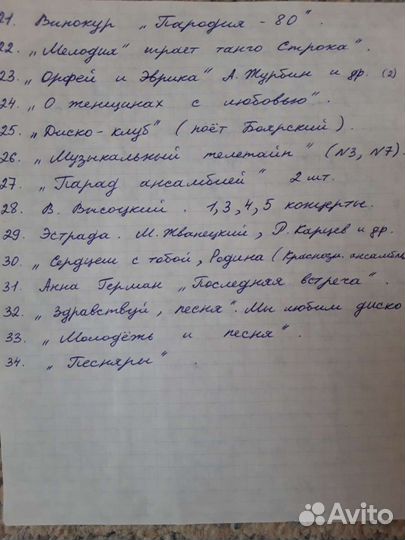 21. Винокур „Пародия - 80".
22. „Мелодия" играет танго Строка".
23. „Орфей и Эврика" А. Журбин и др. (2)
24. „О женщинах с любовью".
25. „Диско-клуб" (поёт Боярский).
26. „Музыкальный телетайп" (N3, N7).
27. „Парад ансамблей" 2 шт.
28. В. Высоцкий. 1,3,4,5 концерты.
29. Эстрада. М. Жванецкий, Р. Карцев и др.
30. „Сердцем с тобой, Родина (Краснозн. ансамбль
31. Анна Герман „Последняя встреча".
32. „Здравствуй, песня". Мы любим диско
33. „Молодёжь и песня".
34. „Песняры".
Avito